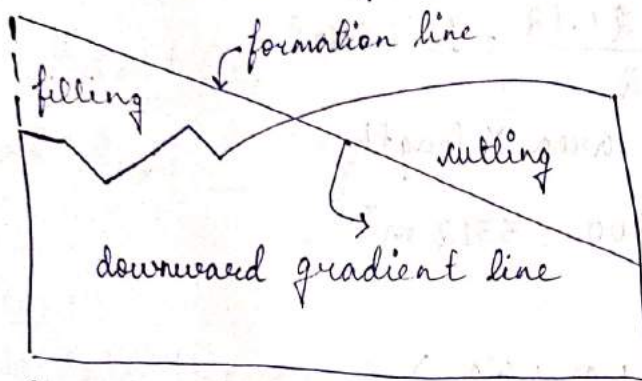 formation line
filling
cutting
downward gradient line